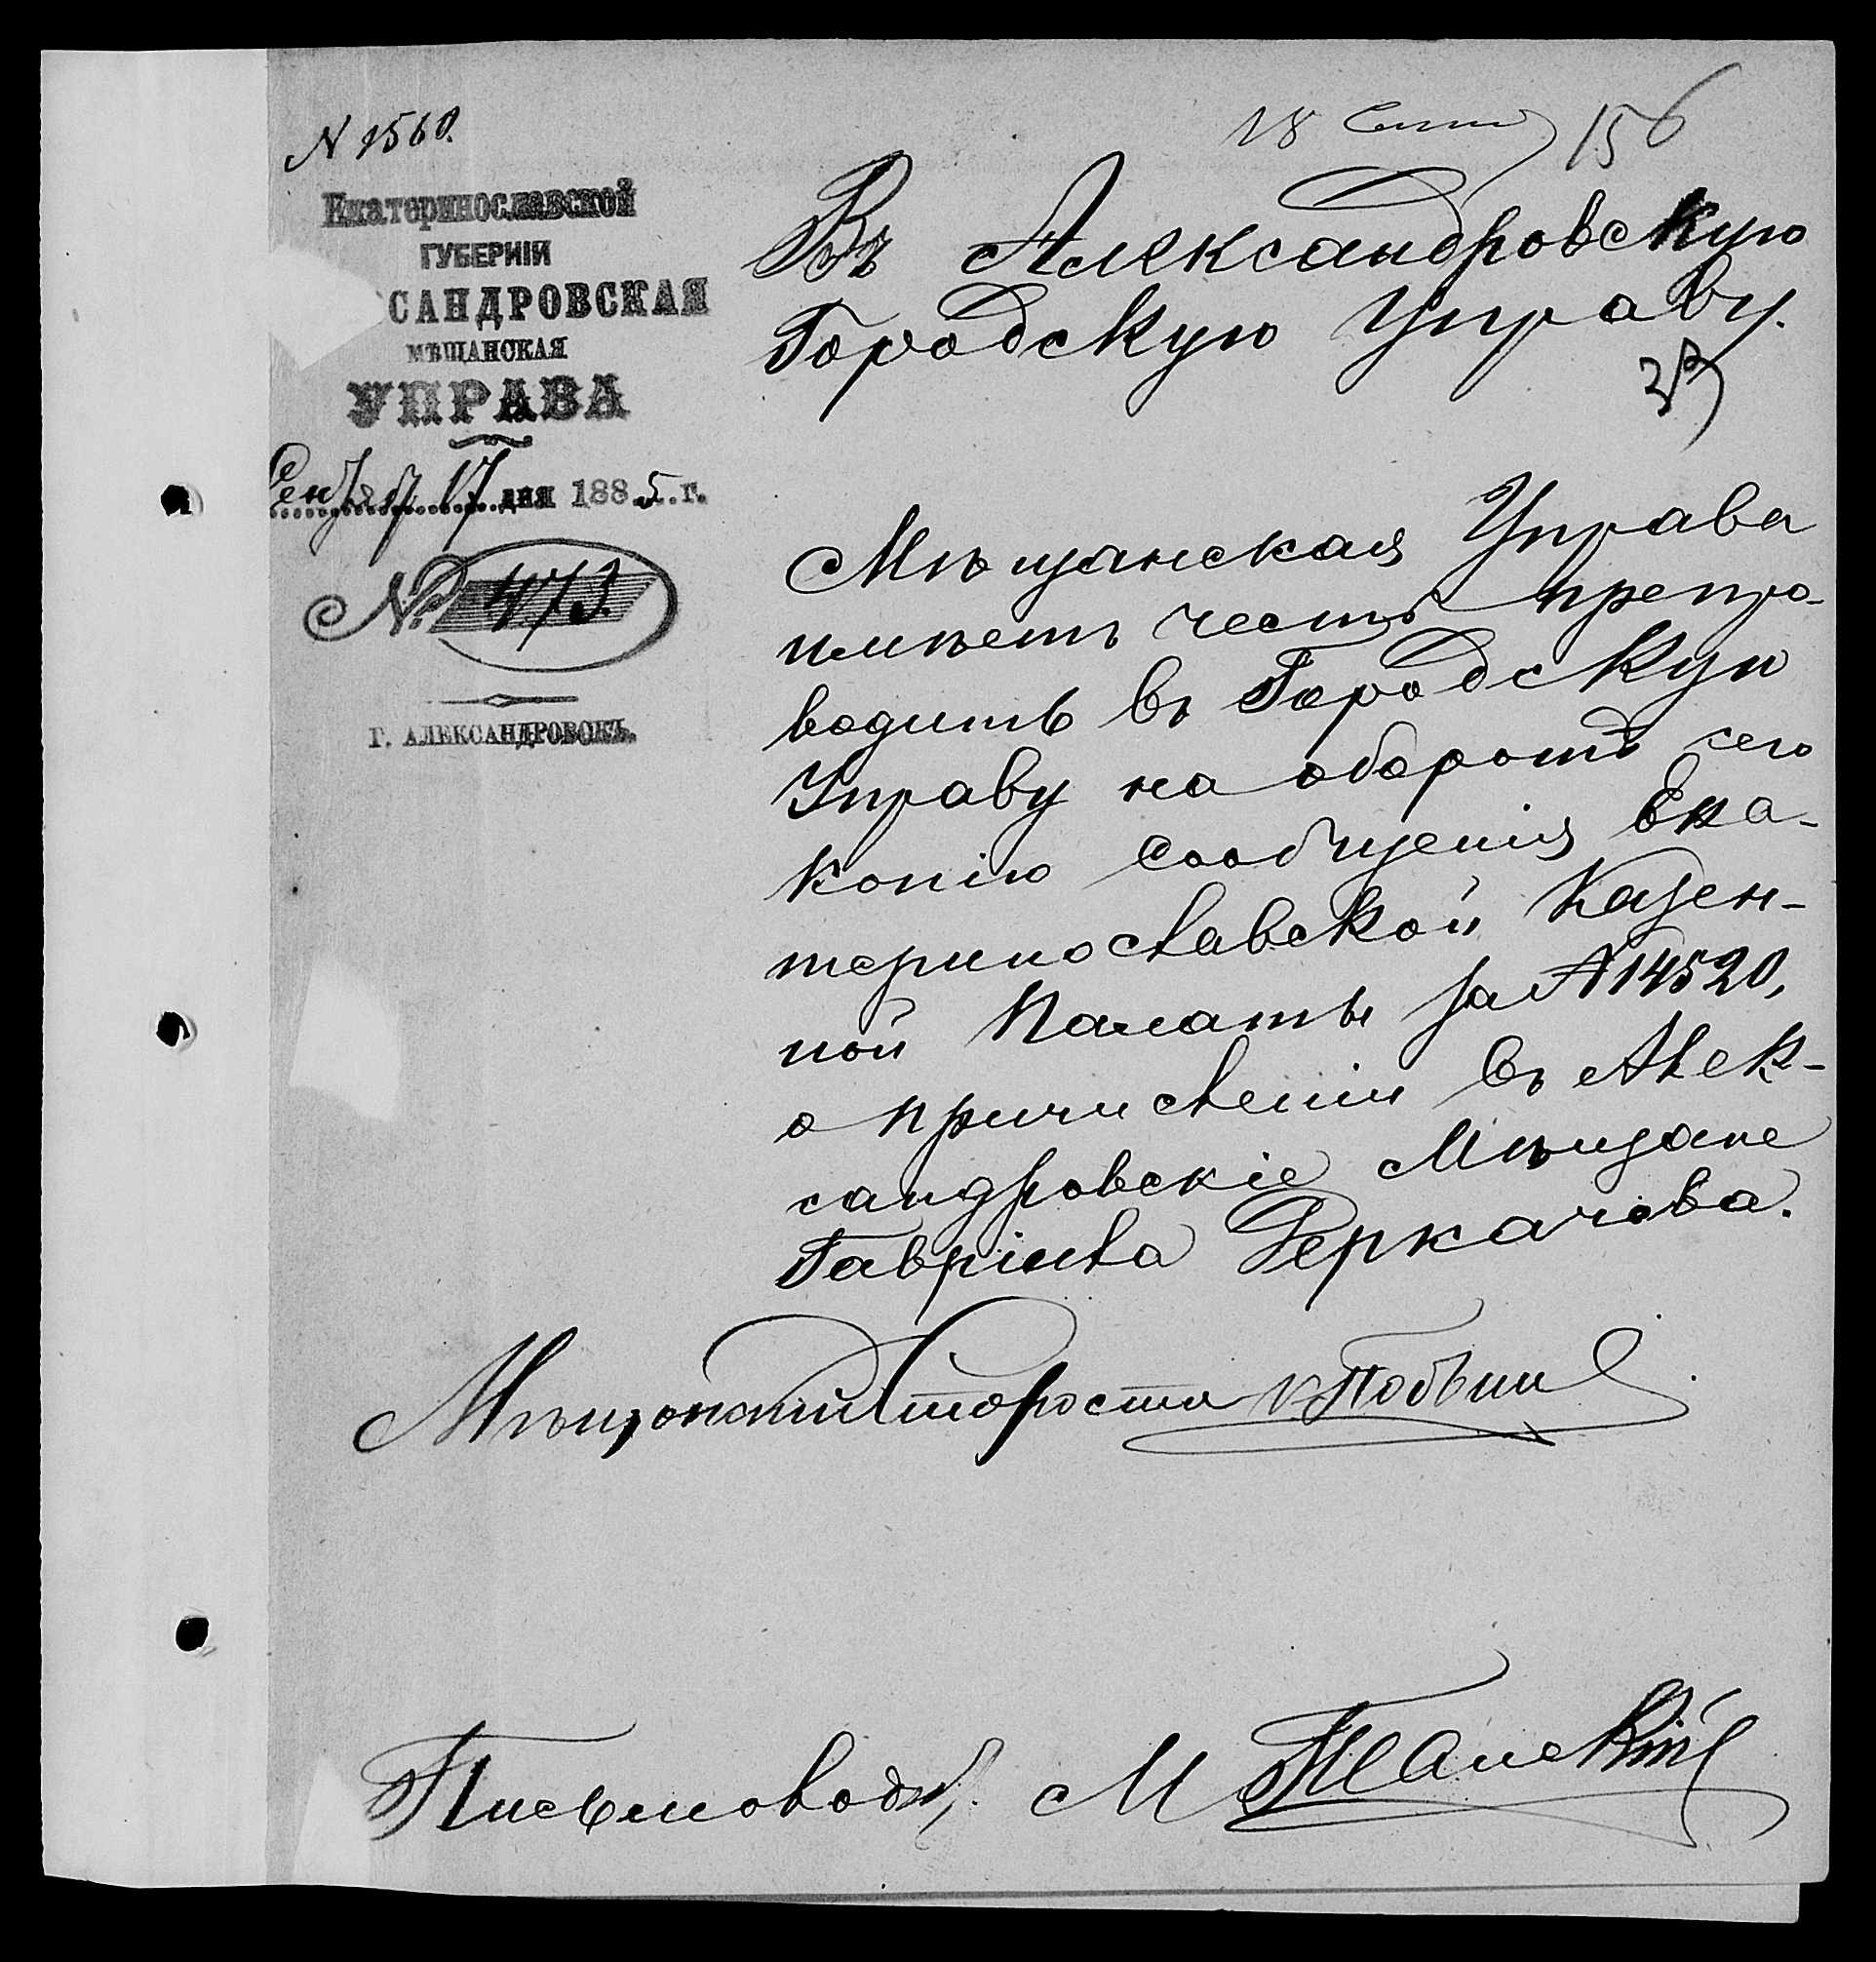 N 1560.
18 Сент 156
Екатеринославской
ГУБЕРНІИ
САНДРОВСКАЯ
МѢЩАНСКАЯ
УПРАВА
Сентября 17 дня 1885 г.
№ 473
Г. АЛЕКСАНДРОВСКЪ.
Въ Александровскую
Городскую Управу.
Мѣщанская Управа
имѣетъ честь препро-
водить въ Городскую
Управу на оборотѣ сего
копію сообщенія Ека-
теринославской Казен-
ной Палаты за N14520,
о причисленіи въ Алек-
сандровскіе Мѣщане
Гавріила Деркачова.
Мѣщанскій Староста
Письмоводт. М